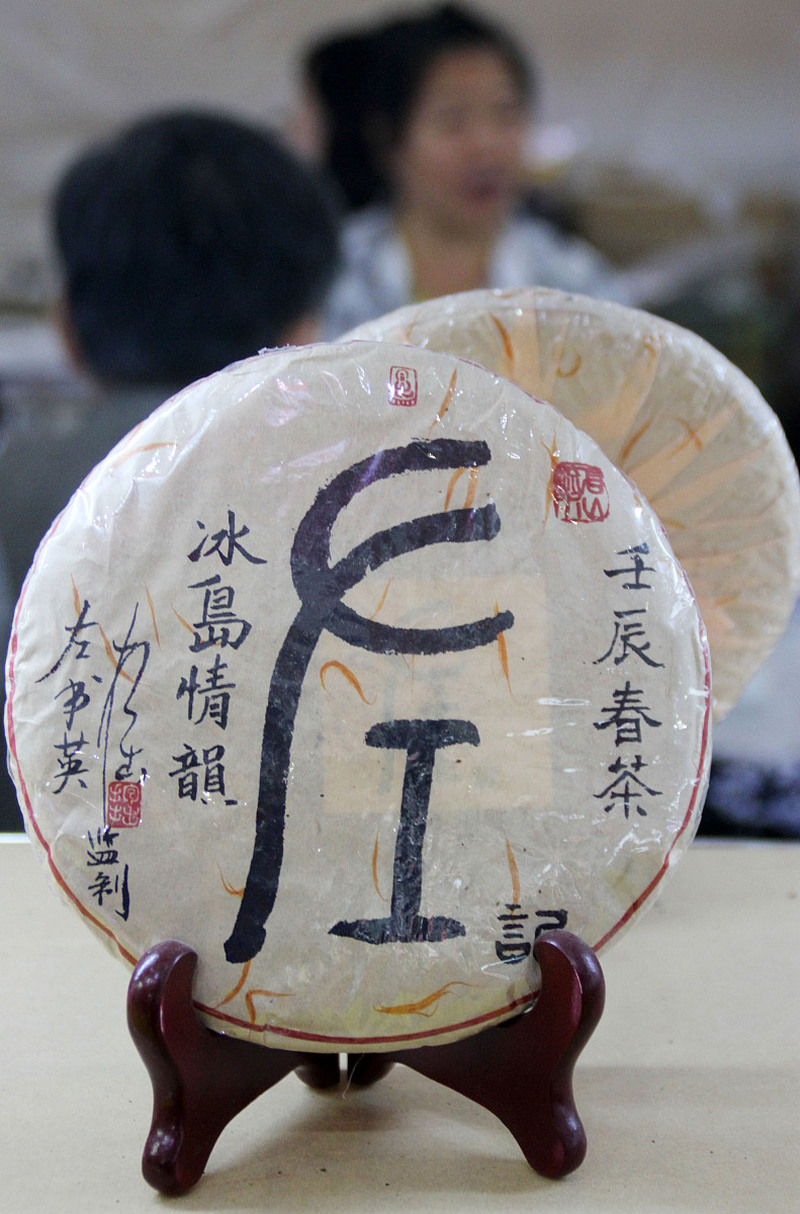 壬辰春茶
左
記
冰島情韻
左书英
监制